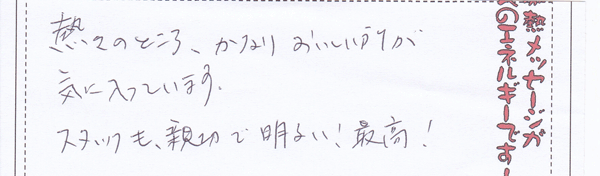 熱々のところ、かなりおいしいりが
気に入っています。
スタッフも、親切で明るい!最高!
熱メッセージが
のエネルギーです!